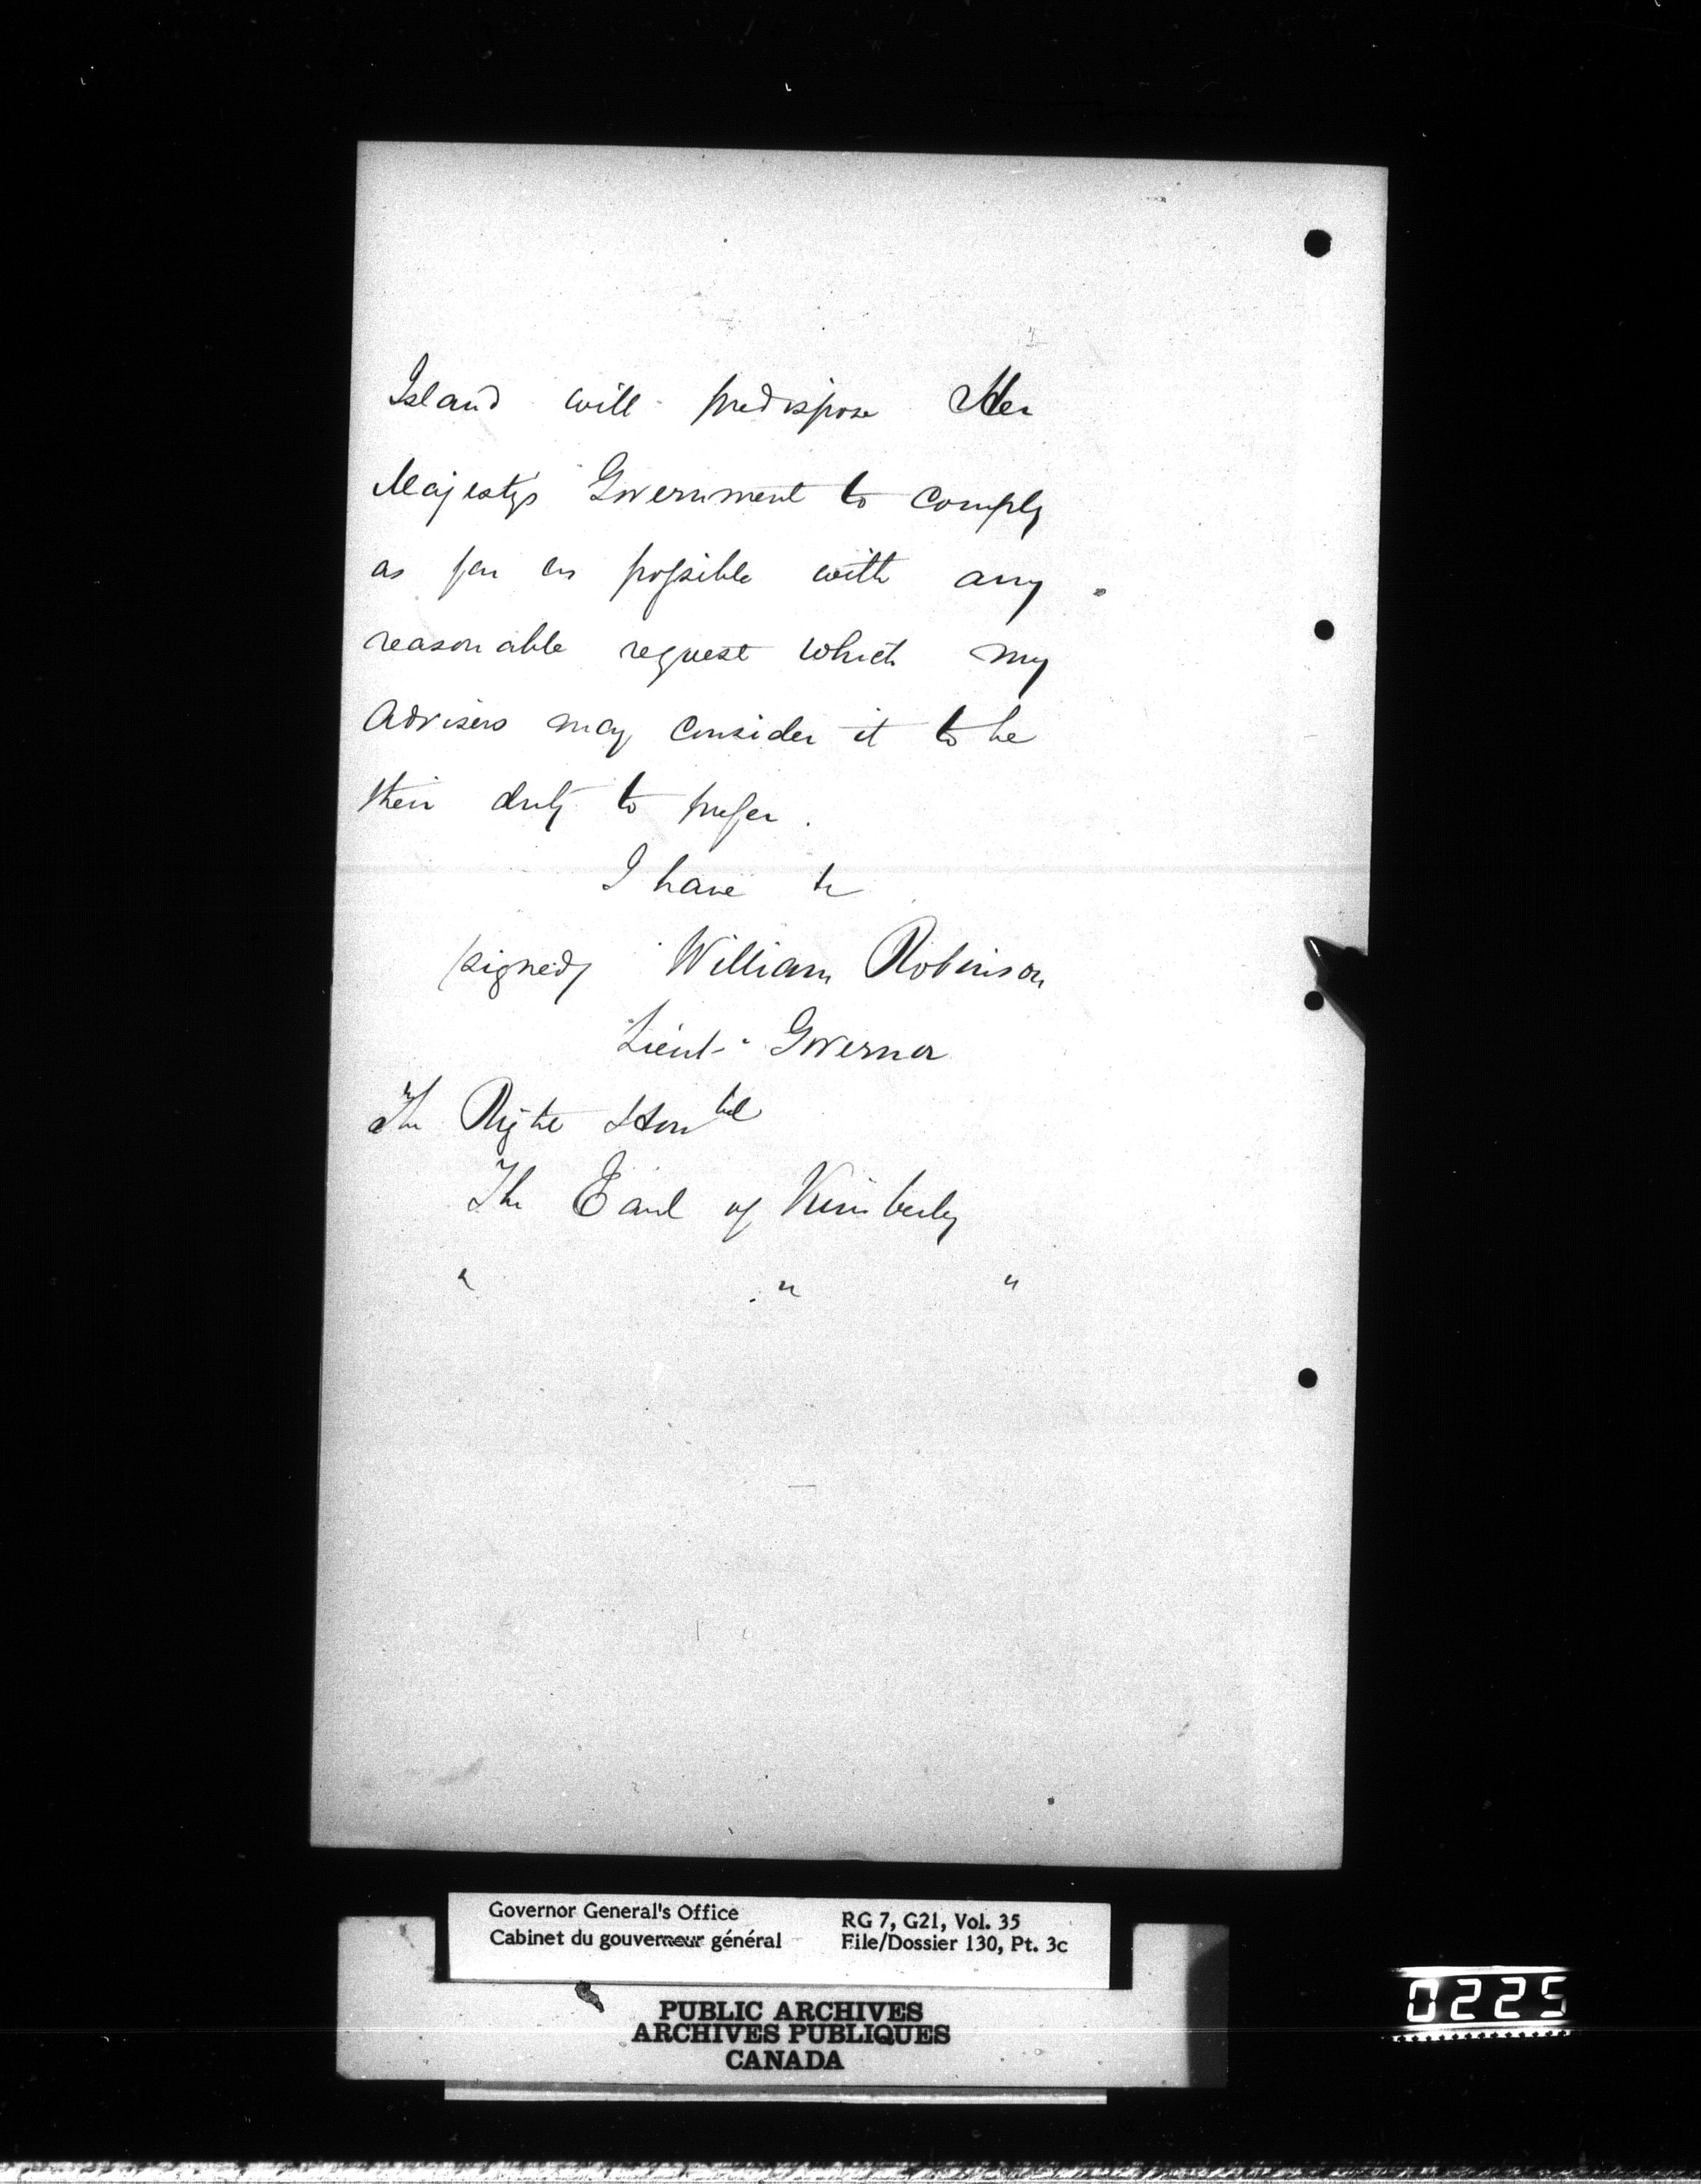 Island will predispose Her
Majesty's Government to comply
as far as possible with any
reasonable request which my
Advisers may consider it to be
their duty to prefer.
I have &c
(signed) William Robinson
Lieut. Governor
The Right Honble
The Earl of Kimberley
" " "
Governor General's Office
Cabinet du gouverneur général
RG 7, G21, Vol. 35
File/Dossier 130, Pt. 3c
PUBLIC ARCHIVES
ARCHIVES PUBLIQUES
CANADA
0225